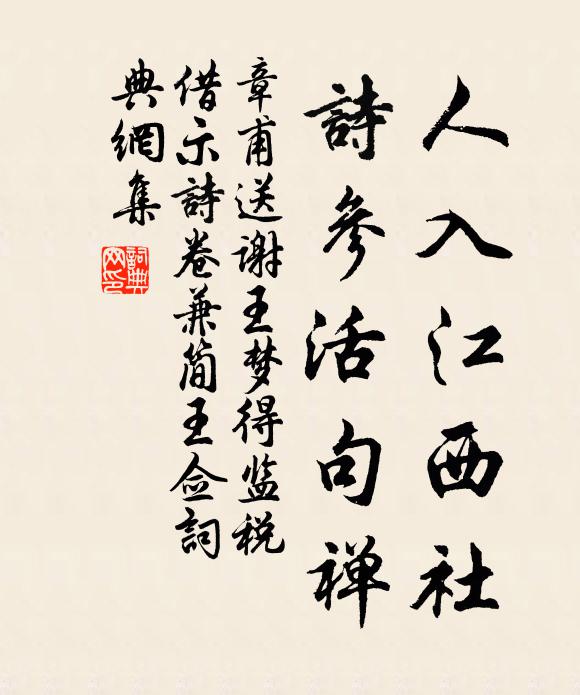 人入江西社
詩參活句禅
章甫送谢王梦得监税
借示詩卷兼简王佥詞
典網集
詞典网印